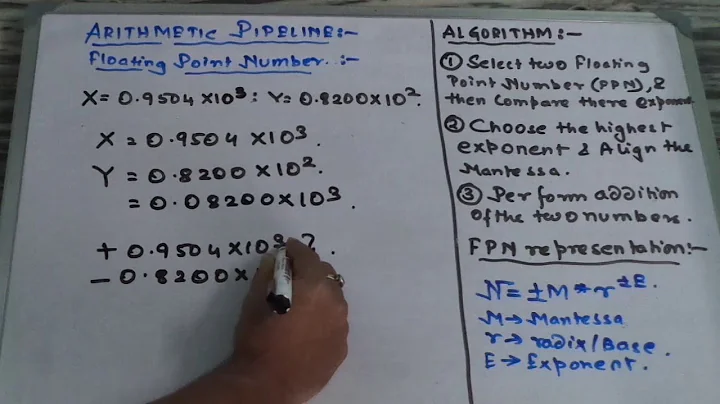 ARITHMETIC PIPELINE:-
Floating Point Number. :-
X= 0.9504 ×10³ : Y= 0.8200×10².
X = 0.9504 ×10³.
Y = 0.8200 ×10².
= 0.08200×10³.
+ 0.9504×10³ ?.
- 0.8200×
ALGORITHM:-
① Select two Floating
Point Number (FPN), &
then Compare there exponent
② Choose the highest
exponent & Align the
Mantessa.
③ Perform addition
of the two numbers.
FPN representation:-
N= ±M * r^±E.
M→ Mantessa
r→ radix/Base.
E→ Exponent.